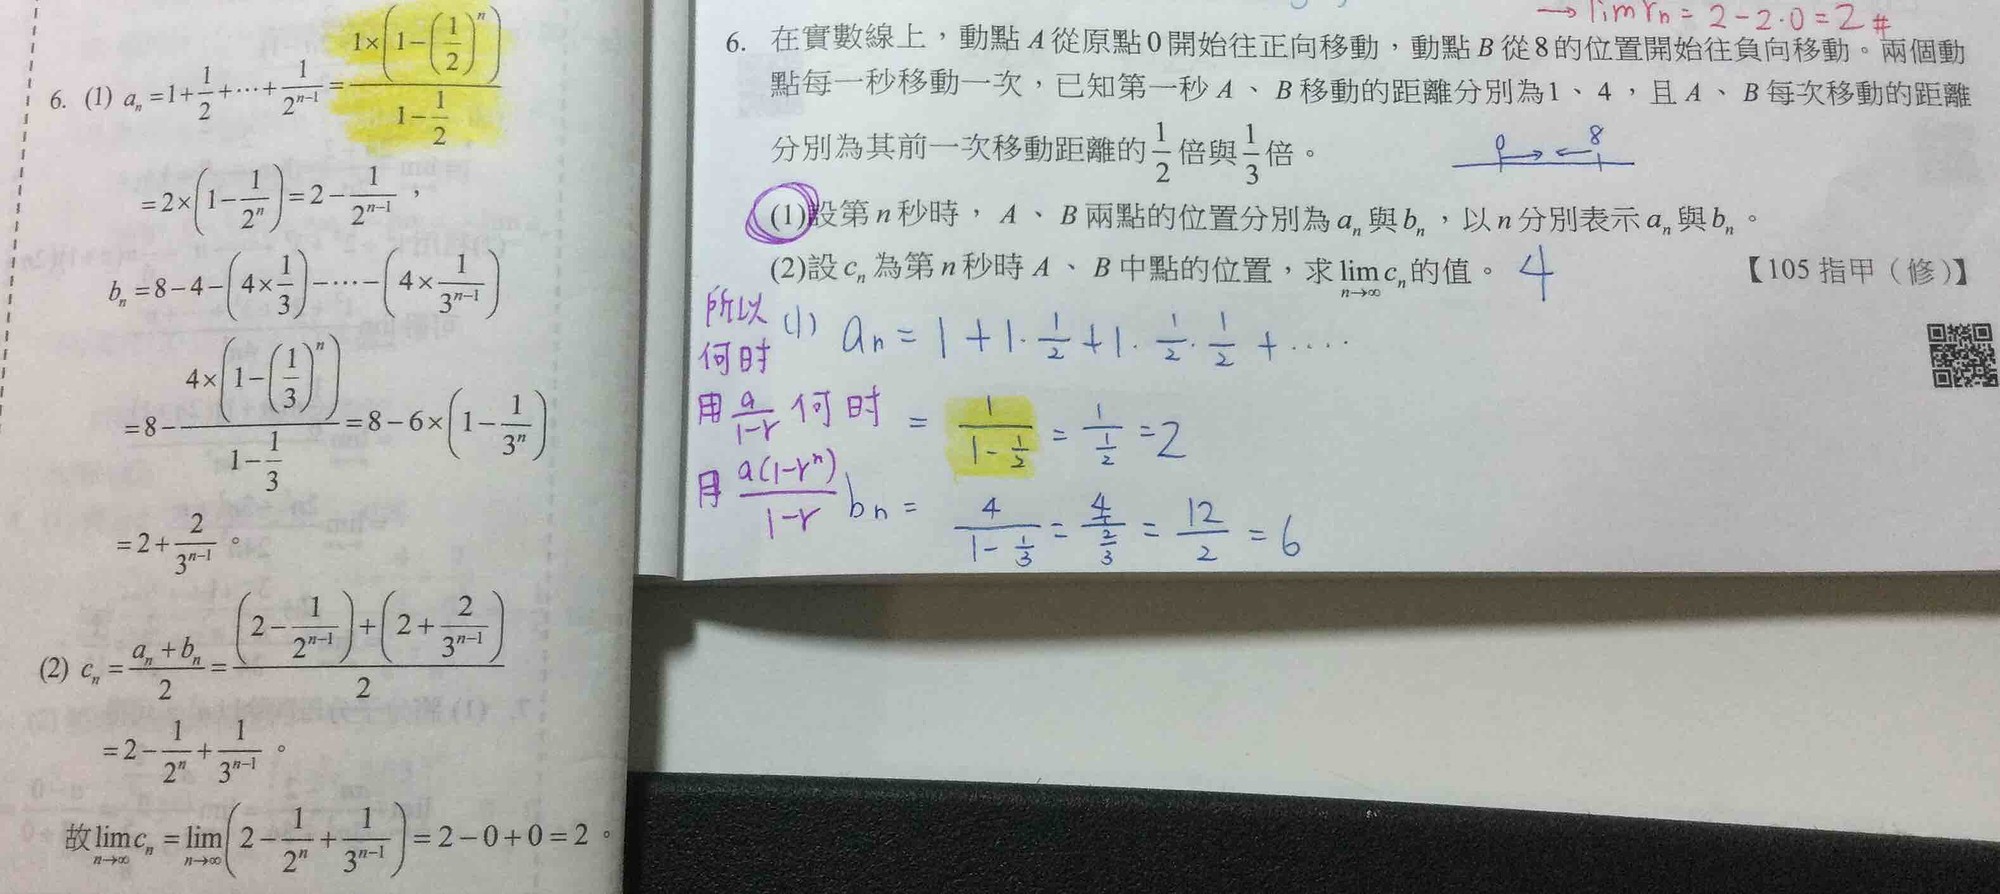 6. (1) aₙ = 1 + 1/2 + ⋯ + 1/2ⁿ⁻¹ = (1×(1−(1/2)ⁿ))/(1−1/2)
= 2×(1−1/2ⁿ) = 2−1/2ⁿ⁻¹，
bₙ = 8−4−(4×1/3)−⋯−(4×1/3ⁿ⁻¹)
= 8−(4×(1−(1/3)ⁿ))/(1−1/3) = 8−6×(1−1/3ⁿ)
= 2+2/3ⁿ⁻¹。
(2) cₙ = (aₙ+bₙ)/2 = ((2−1/2ⁿ⁻¹)+(2+2/3ⁿ⁻¹))/2
= 2−1/2ⁿ+1/3ⁿ⁻¹。
故 lim n→∞ cₙ = lim n→∞ (2−1/2ⁿ+1/3ⁿ⁻¹) = 2−0+0 = 2。
→ lim rₙ = 2−2·0 = 2 #
6. 在實數線上，動點 A 從原點 0 開始往正向移動，動點 B 從 8 的位置開始往負向移動。兩個動
點每一秒移動一次，已知第一秒 A、B 移動的距離分別為 1、4，且 A、B 每次移動的距離
分別為其前一次移動距離的 1/2 倍與 1/3 倍。
0 8
(1)設第 n 秒時，A、B 兩點的位置分別為 aₙ 與 bₙ，以 n 分別表示 aₙ 與 bₙ。
(2)設 cₙ 為第 n 秒時 A、B 中點的位置，求 lim n→∞ cₙ 的值。 4 【105 指甲（修）】
(1) aₙ = 1 + 1·1/2 + 1·1/2·1/2 + ····
= 1/(1−1/2) = 1/(1/2) = 2
bₙ = 4/(1−1/3) = 4/(2/3) = 12/2 = 6
所以
何时
用 a/(1−r) 何时
用 a(1−rⁿ)/(1−r)